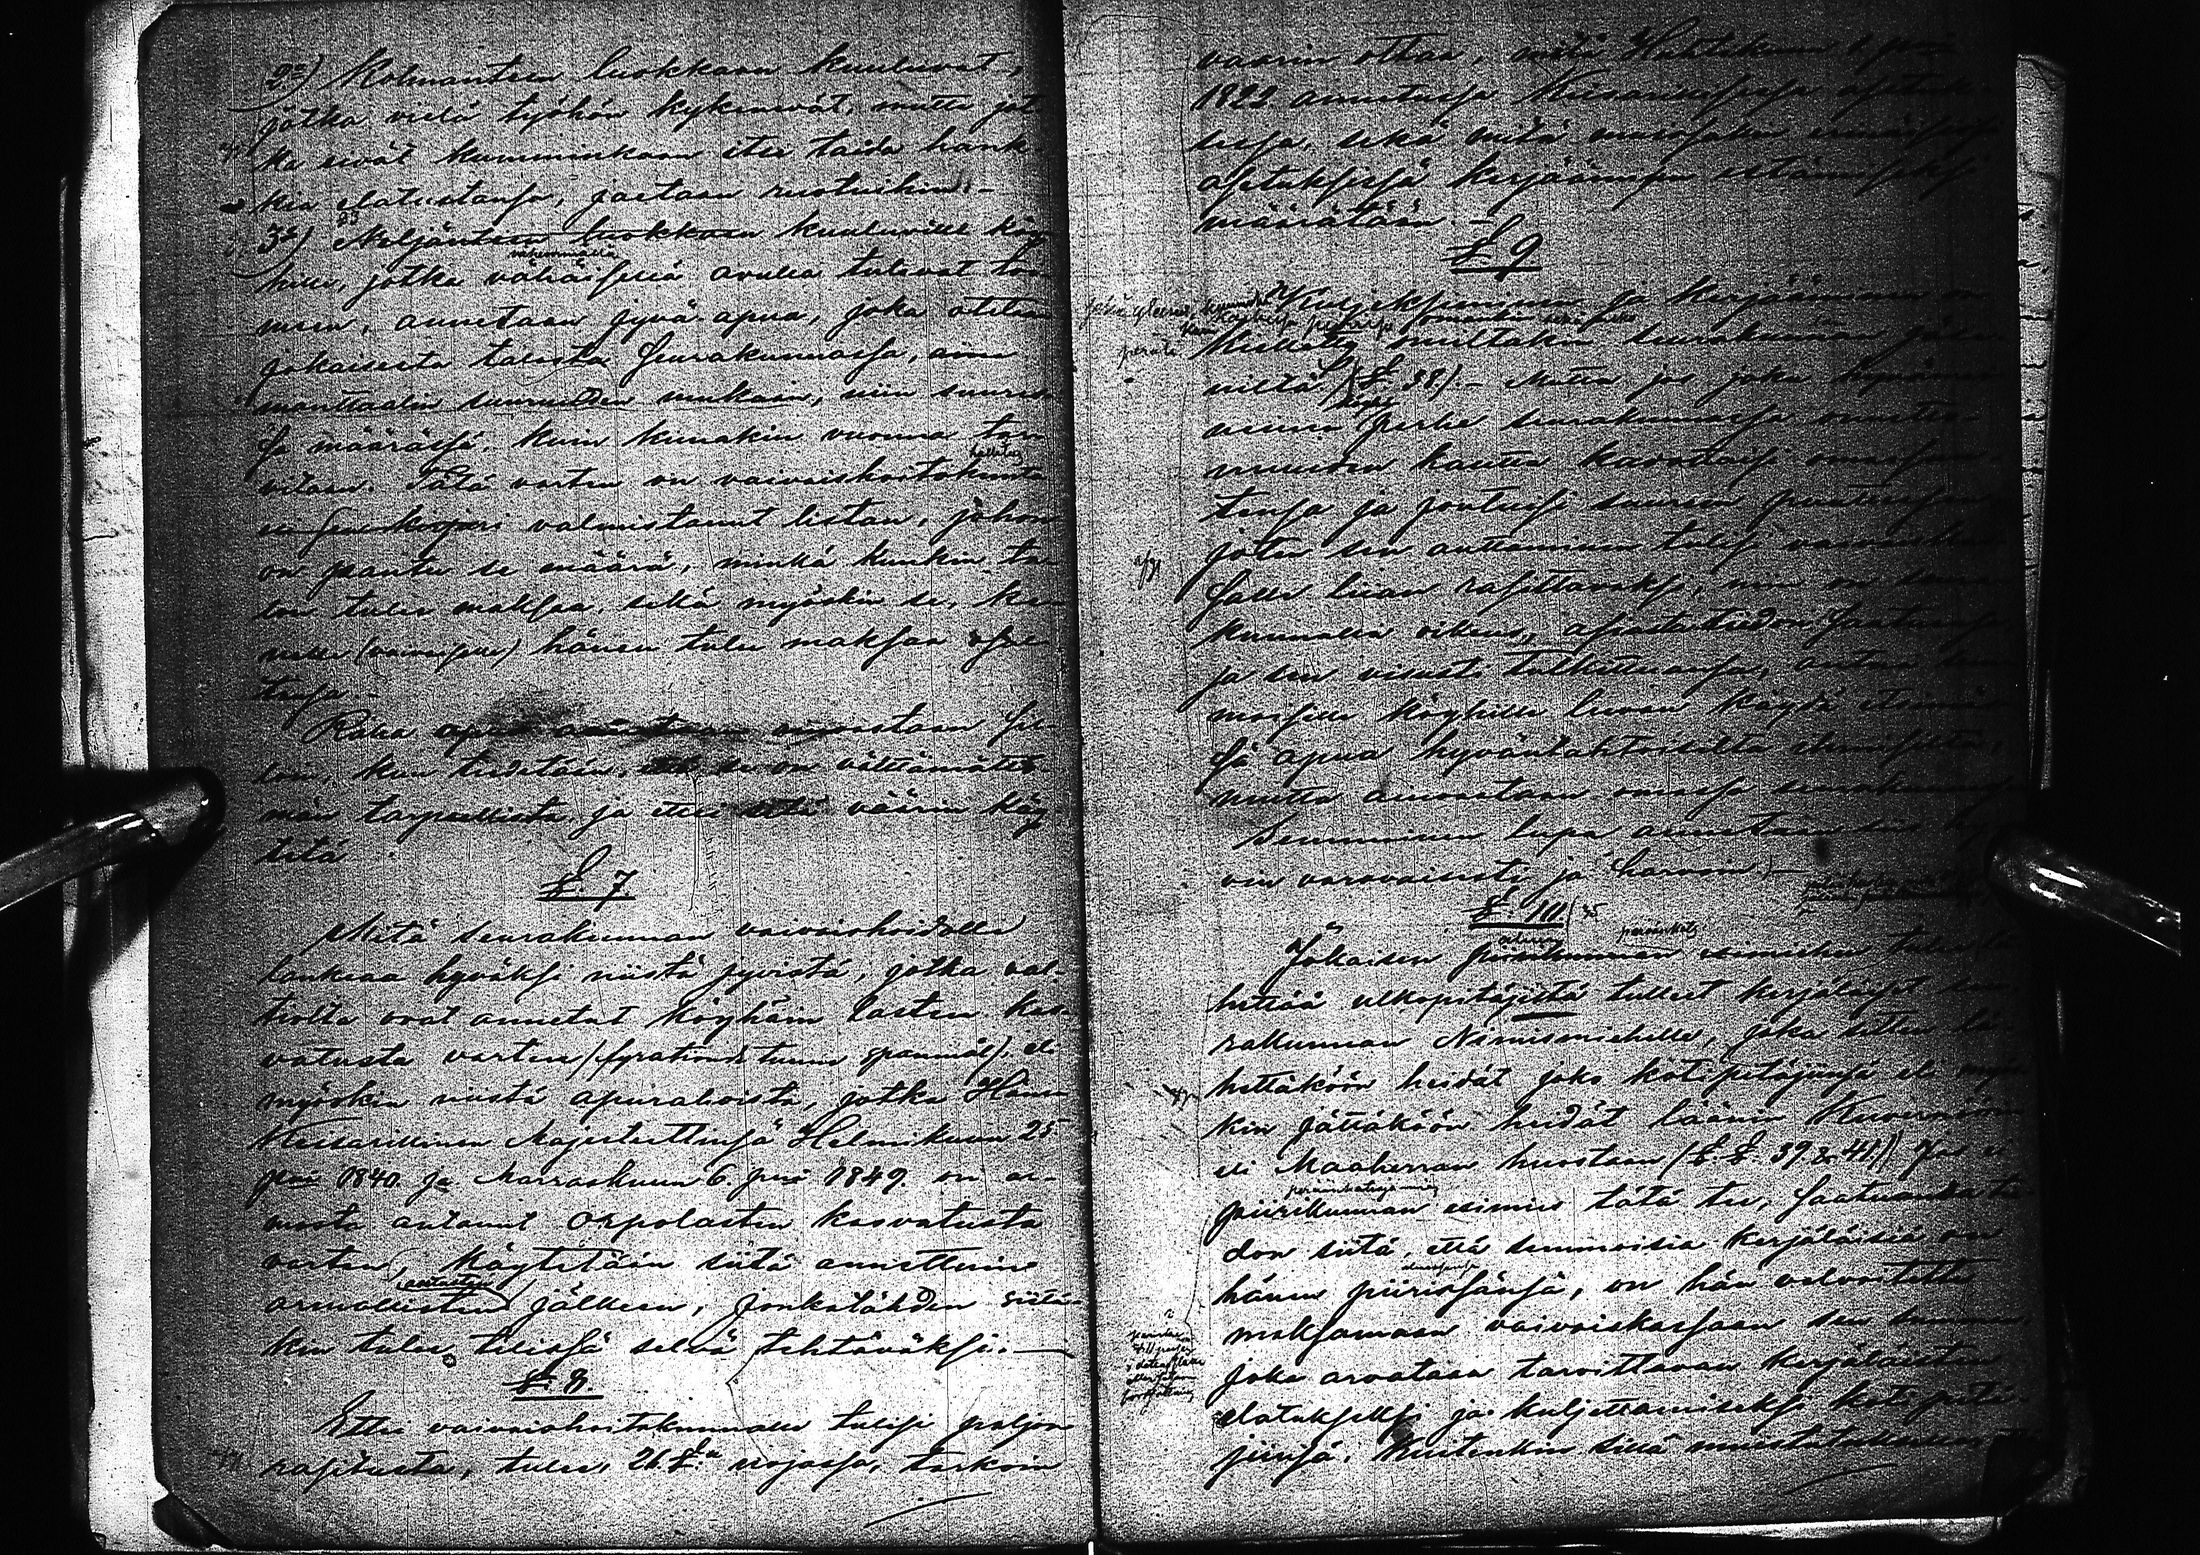 2a) Kolmanteen luokkaan kuuluvat,
jotka vielä työhön kykenevät, mutta jot
ka eivät kumminkaan itse taida hank
kia elatustansa, jaetaan ruotuihin. -
3a) Neljänteen luokkaan kuuluville köy
hille, jotka vähäisellä avulla tulevat toi
meen, annetaan jyvä-apua, joka otetaan
jokaisesta talosta Seurakunnassa, aina
manttaalin suuruuden mukaan, niin suures
sa määrässä, kuin kunakin vuonna tar
vitaan. Tätä varten on vaivaishoitokunta
valmistanut listan, johon
on pantu se määrä, minkä kunkin ta
lon tulee maksaa, sekä myöskin se, kene
nelle (vaivaiselle) hänen tulee maksaa osuu
tensa. -
Raha apua annetaan ainoastaan sil
loin, kun tiedetään, että se on välttämättö-
män tarpeellista, ja ettei sitä väärin käy-
tetä.
§. 7.
Mitä seurakunnan vaivaishoidolle
lankeaa hyväksi niistä jyvistä, jotka val-
tiolta ovat annetut köyhäin lasten kas-
vatusta varten (fyrationde tunne spanmål), eli
myöskin niistä apurahoista, jotka Hänen
Keisarillinen Majesteettinsä Helmikuun 25
p:nä 1840 ja Marraskuun 6. p:nä 1849. on ar-
mosta antanut orpolasten kasvatusta
varten, käytetään siitä annettuin
armollisten asetusten jälkeen, jonkatähden siitä-
kin tulee tilissä selvä tehtäväksi. -
§. 8.
Ettei vaivaishoitokunnalle tulisi paljon
rasitusta, tulee, 26 §:n nojassa, tarkoin
vaarin ottaa, mitä Huhtikuun
1822 annetussa Kuulutuksessa
sekä mitä muissakin
asetuksissa kerjäämisen estämiseksi
määrätään. -
§. 9
ja kerjääminen on
kielletty omiltakin seurakunnan
(§ 38). - Mutta jos joku
perhe seurakunnassa
muiden kautta kadottaisi
tensa ja joutuisi suureen puutteesen
joten sen auttaminen tulisi
liian rasittavaksi, niin on
kunnalla oikeus, asiasta tiedon saatuansa,
ja sen visusti tutkittuansa, antaa
köyhille luvan käydä etsimäs
sä apua hyväntahtoisilta ihmisiltä,
mutta ainoastaan omassa seurakunnassa
Semmoinen lupa annetaan siis hy
vin varovaisesti ja harvoin. -
§. 10.
Jokaisen piirikunnan esimiehen tulee
hettää ulkopitäjistä tulleet kerjäläiset seu
rakunnan Nimismiehelle, joka sitten lä-
hettäköön heidät joko kotipitäjäänsä eli myös
kin jättäköön heidät läänin Kuvernöörin
eli Maaherran huostaan (§.§. 39 & 41.) Jos ei
piirikunnan esimies tätä tee, saatuansa tie
don siitä, että semmoisia kerjäläisiä on
hänen piirissänsä, on hän velvoitettu
maksamaan vaivaiskassaan sen summan,
joka arvataan tarvittavan kerjäläisten
elatukseksi ja kuljettamiseksi kotipitä-
jiinsä. Kuitenkin sillä muistutuksella